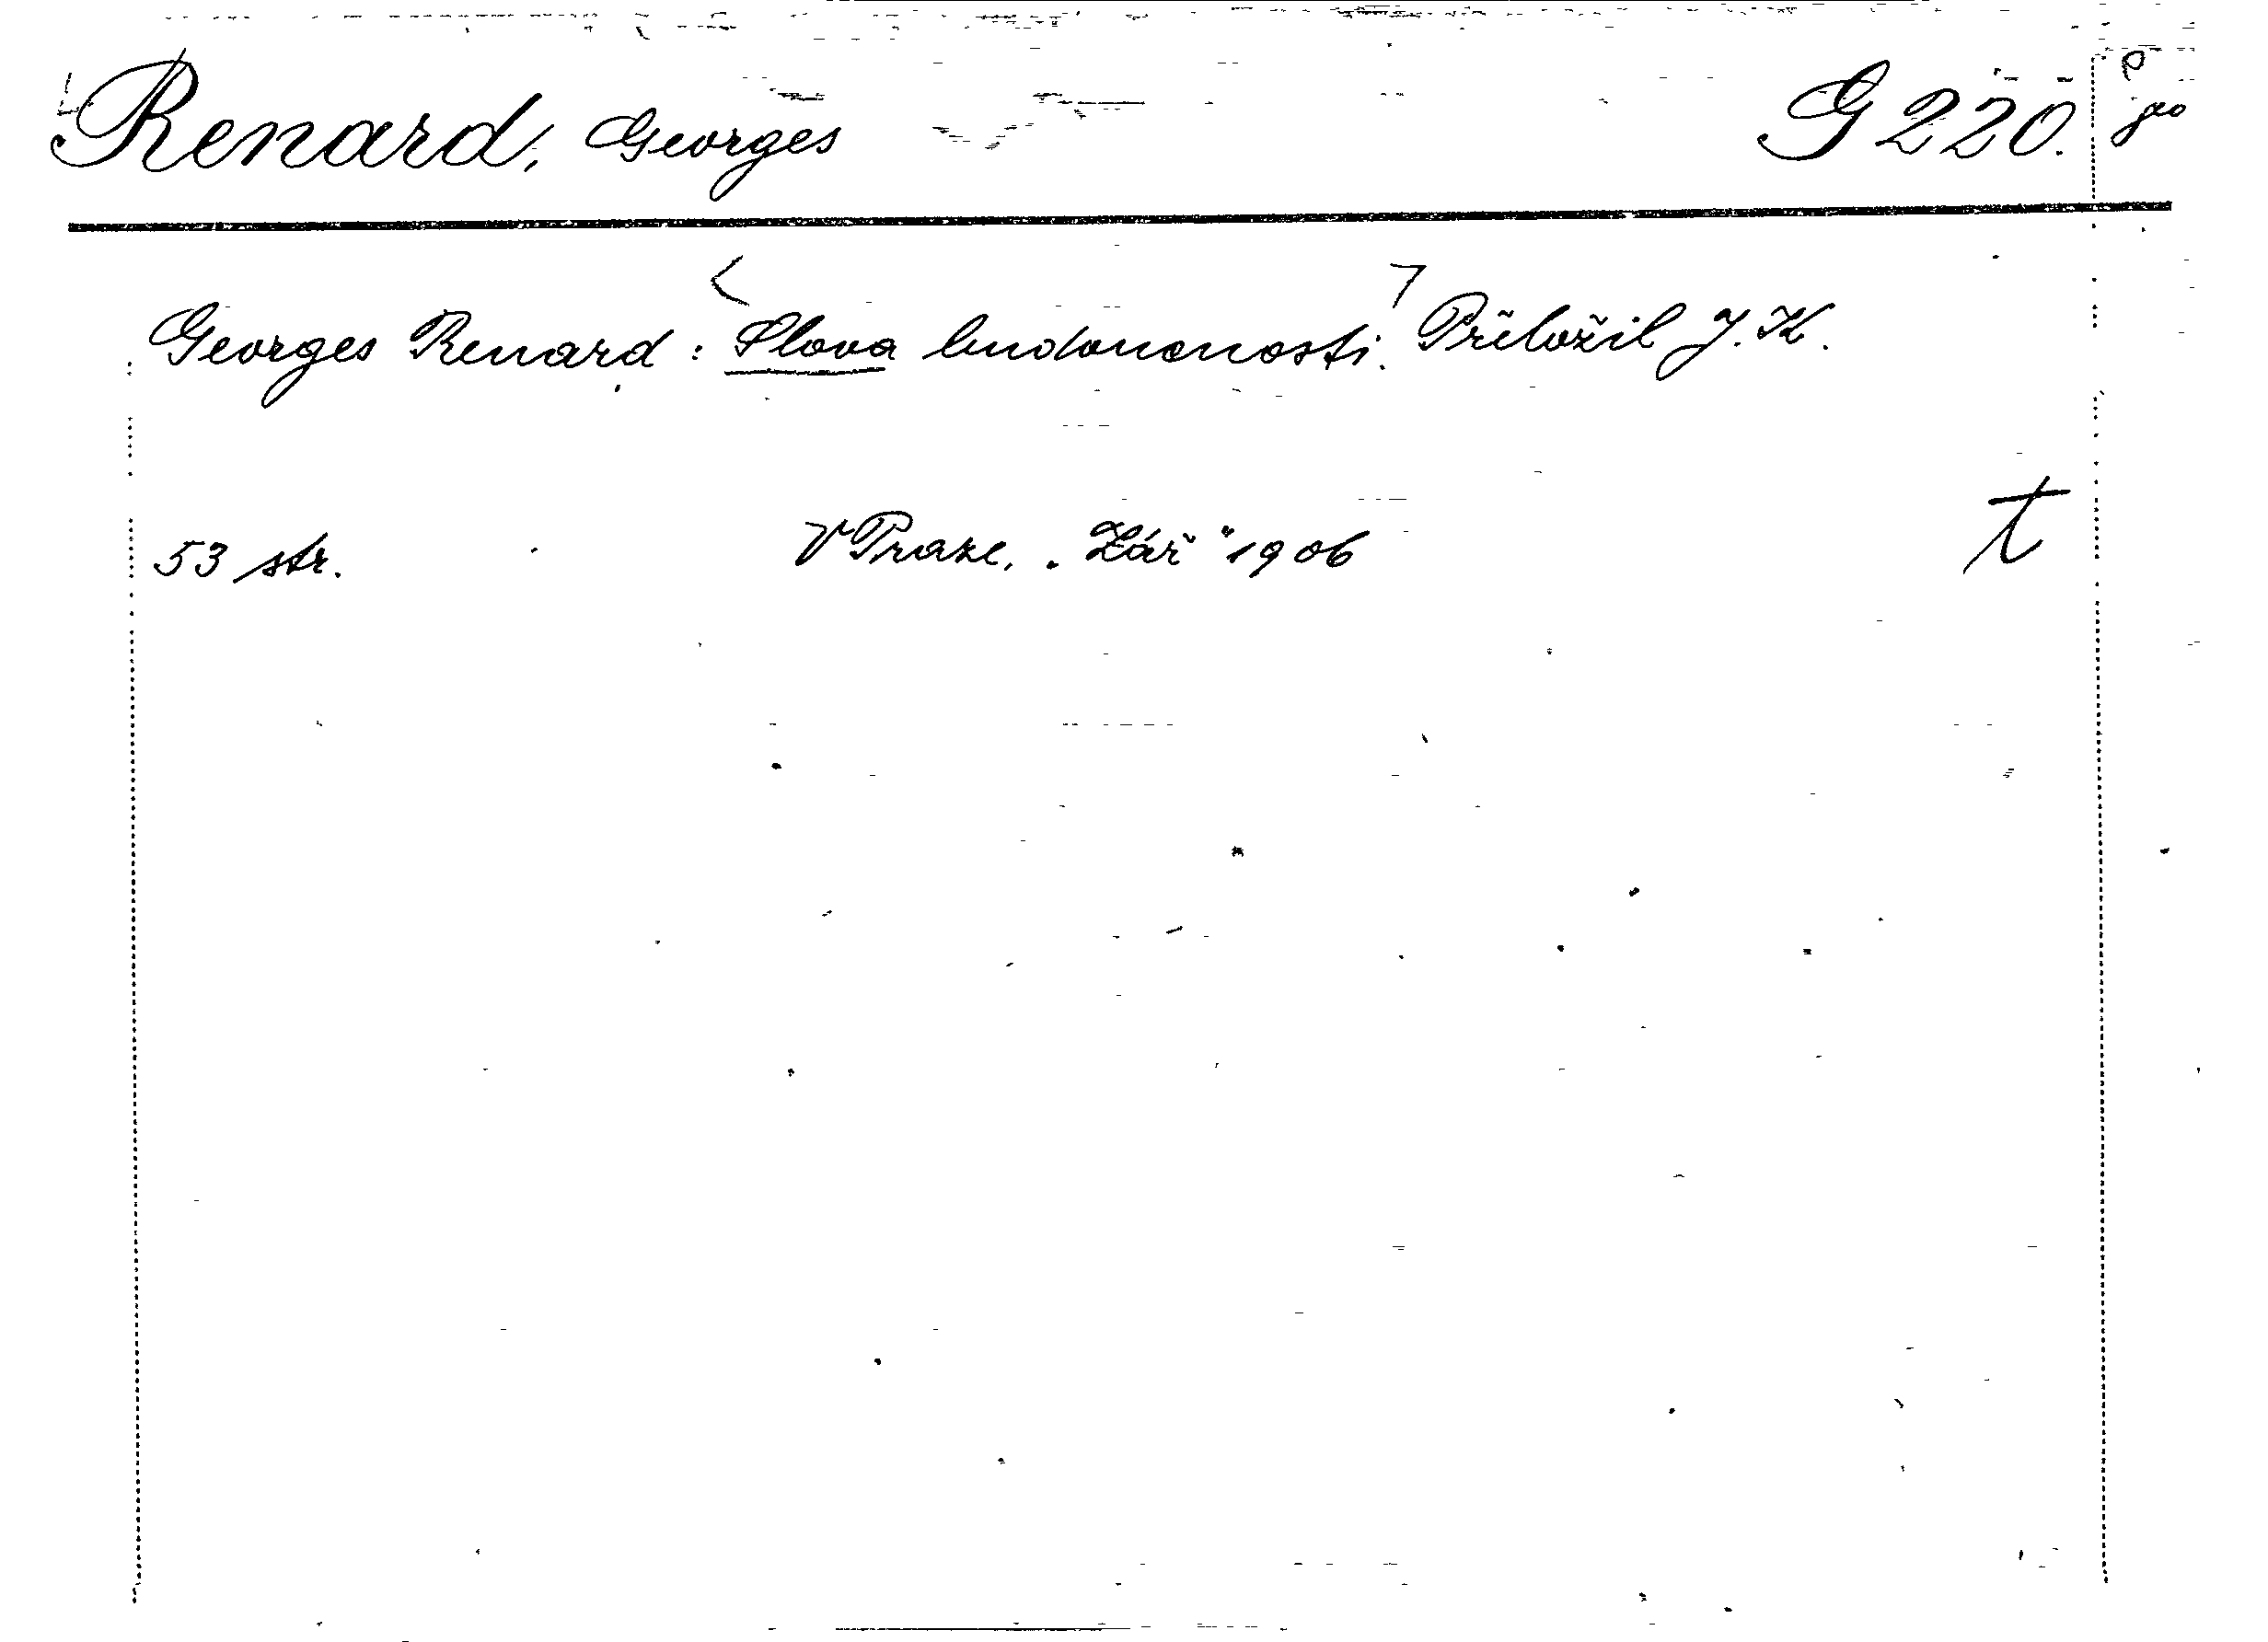 Renard, Georges G 220.
Georges Renard: Slova budoucnosti. Přeložil J. K.
53 str. V Praze, "Zář" 1906 t